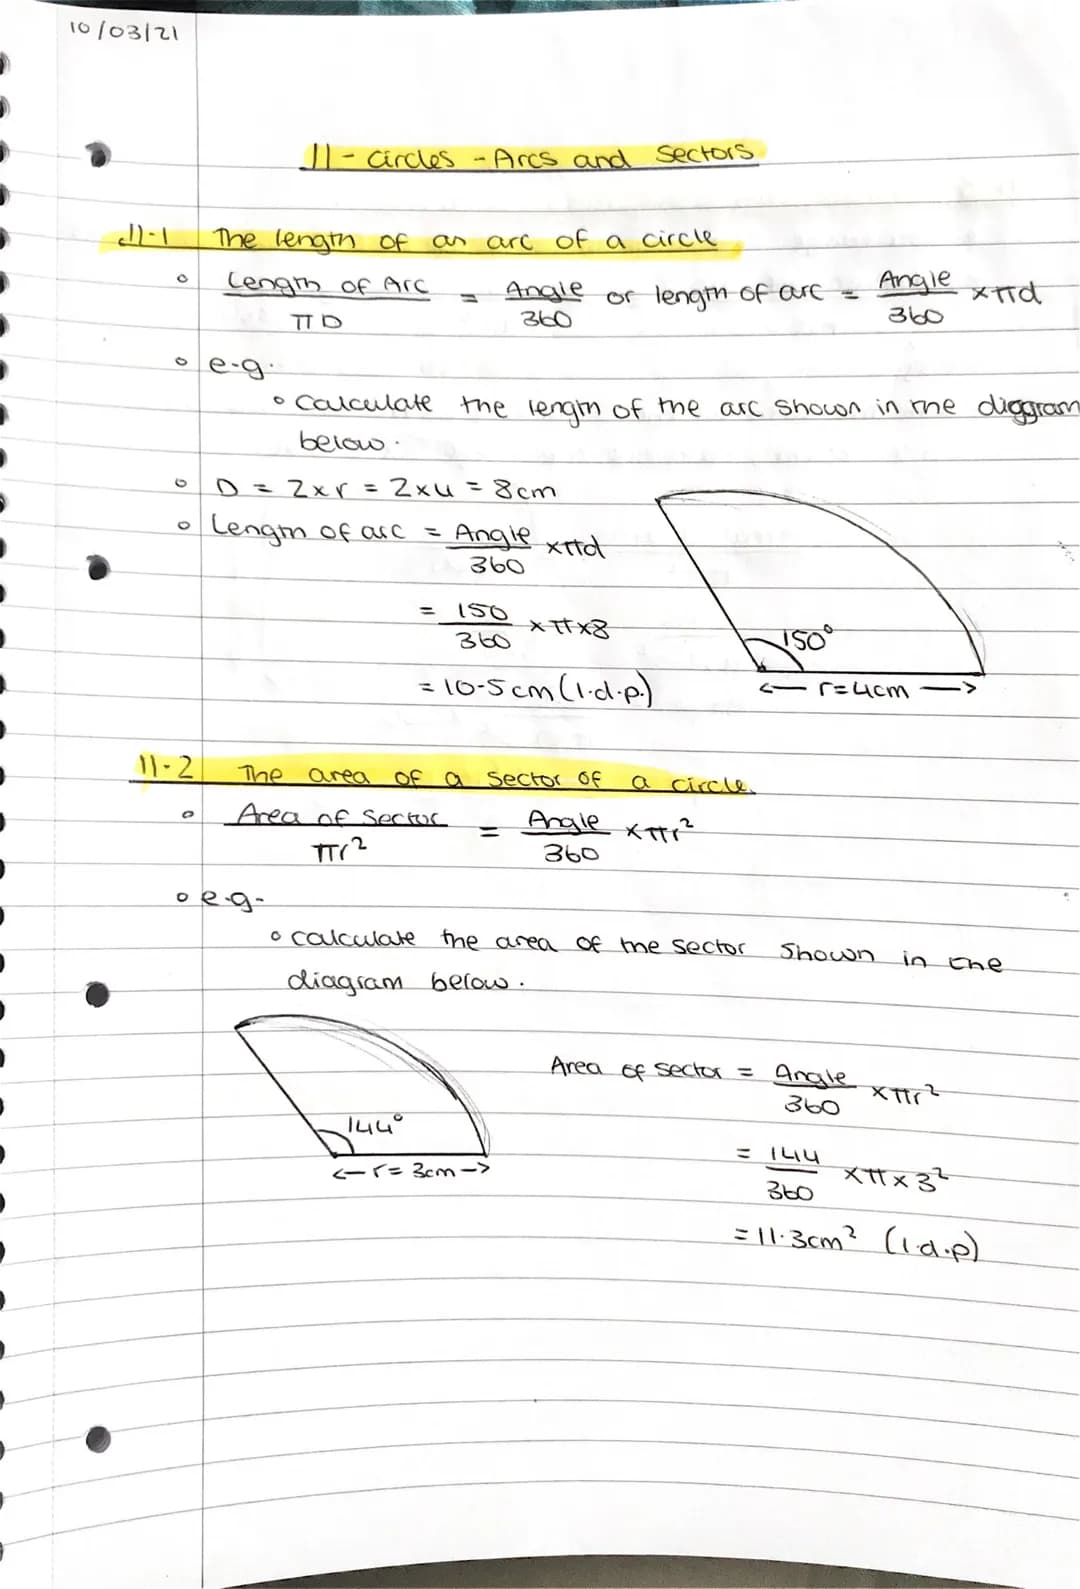 10/03/21
11 - Circles - Arcs and Sectors
11.1 The length of an arc of a circle
Length of Arc / πD = Angle / 360 or length of arc = Angle / 360 × πd
e.g.
Calculate the length of the arc shown in the diagram
below.
D = 2×r = 2×4 = 8cm
Length of arc = Angle / 360 × πd
= 150 / 360 × π × 8
150°
= 10.5cm (1.d.p.)
← r=4cm →
11.2 The area of a sector of a circle.
Area of Sector / πr² = Angle / 360 × πr²
e.g.
calculate the area of the sector shown in the
diagram below.
Area of sector = Angle / 360 × πr²
144°
← r= 3cm →
= 144 / 360 × π × 3²
= 11.3cm² (1.d.p)